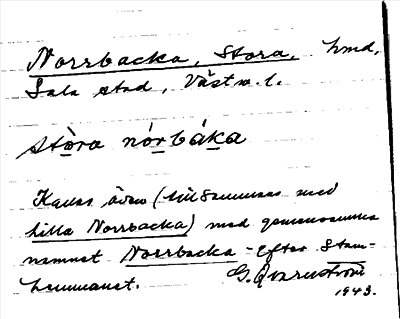 Norrbacka, Stora, hmd,
Sala stad, Västm. l.
stòra nórbáka
Kallas även (tillsammans med
lilla Norrbacka) med gemensamma
namnet Norrbacka - efter Stam-
hemmanet. G. Qvarnström
1943.